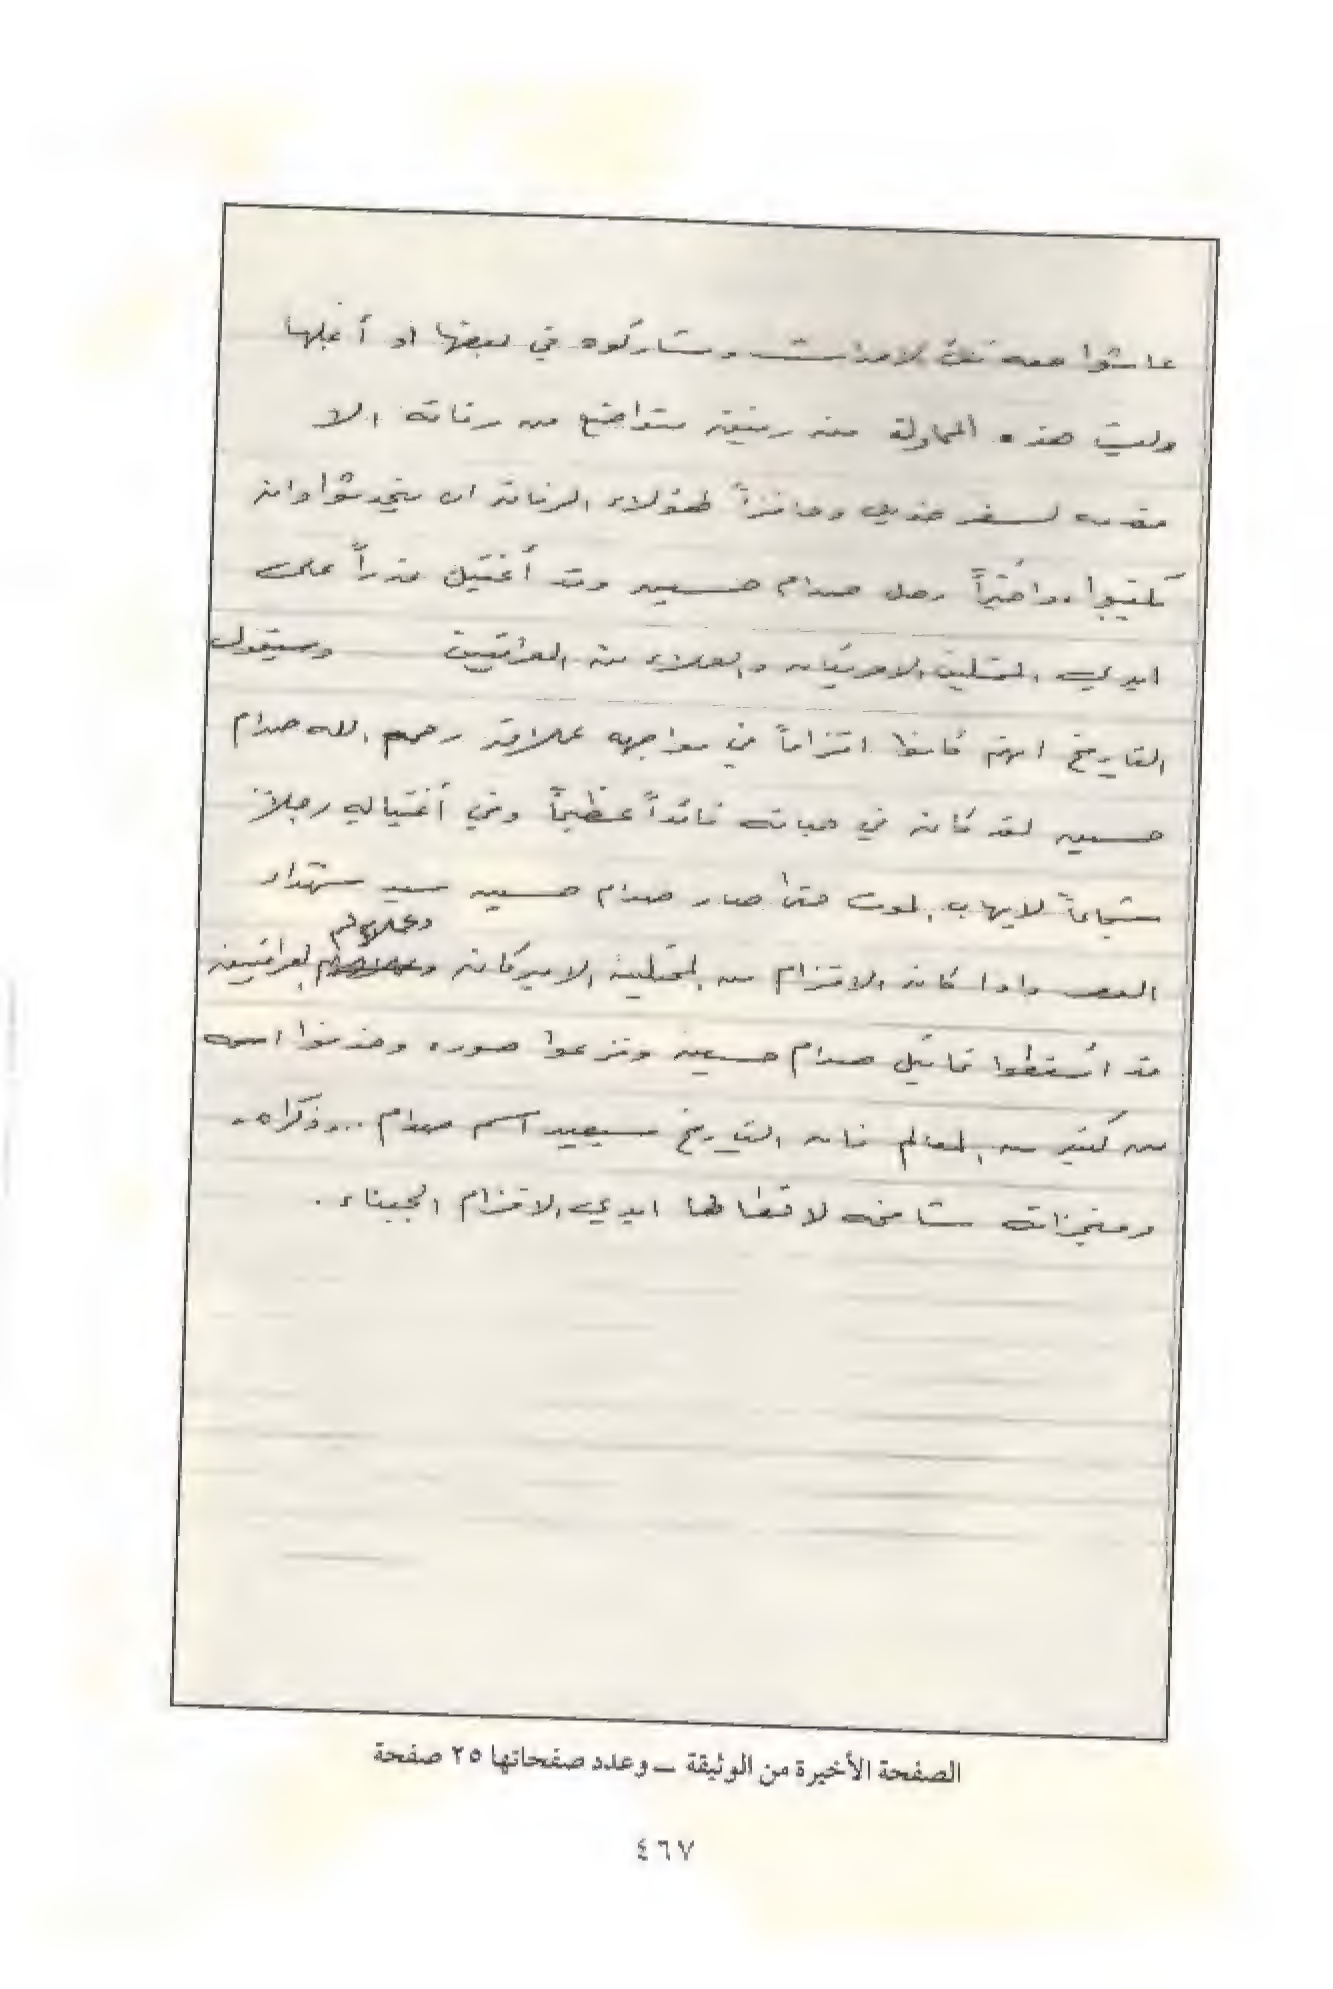 عاشوا معه تلك الاحداث وشاركوه في بعضها او أغلبها
وليست هذه المحاولة من رفيق متواضع من رفاقه الا
مقدمه لسفر حزبي وحافزاً لهؤلاء الرفاق ان يتحدثوا وان
يكتبوا. واخيراً رحل صدام حسين وقد أغتيل غدراً على
ايدي المحتلين الامريكان والعملاء من العراقيين وسيقول
التاريخ انهم كانوا اقزاماً في مواجهه عملاق رحم الله صدام
حسين لقد كان في حياته قائداً عظيماً وفي أغتياله رجلاً
شجاعاً لايهاب الموت حتى صار صدام حسين سيد شهداء
العصر واذا كان الاقزام من المحتلين الاميركان وعملائهم العراقيين
قد اسقطوا تماثيل صدام حسين ونزعوا صوره وحذفوا اسمه
من كثير من المعالم فان التاريخ سيعيد اسم صدام .. وذكراه.
ومنجزاته شامخه لاتطالها ايدي الاقزام الجبناء .
الصفحة الأخيرة من الوثيقة ـ وعدد صفحاتها ٢٥ صفحة
٤٦٧